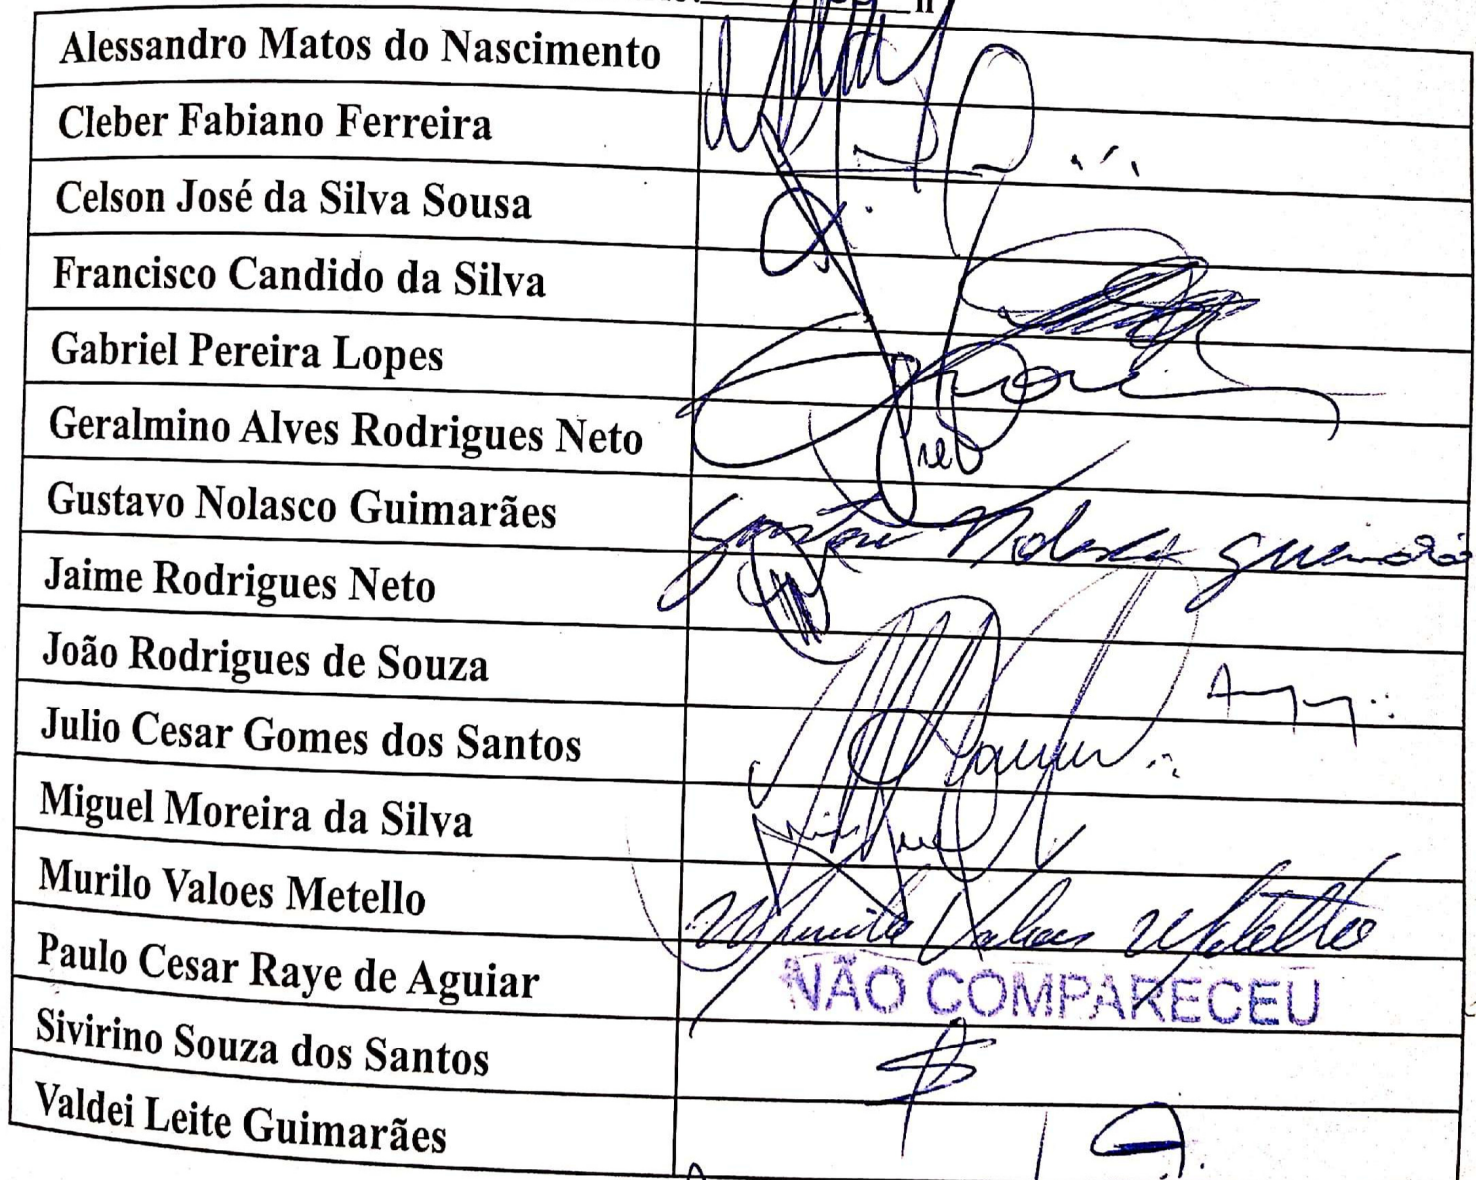 Alessandro Matos do Nascimento
Cleber Fabiano Ferreira
Celson José da Silva Sousa
Francisco Candido da Silva
Gabriel Pereira Lopes
Geralmino Alves Rodrigues Neto
Gustavo Nolasco Guimarães Gustavo Nolasco Guimarães
Jaime Rodrigues Neto
João Rodrigues de Souza
Julio Cesar Gomes dos Santos
Miguel Moreira da Silva
Murilo Valoes Metello Murilo Valoes Metello
Paulo Cesar Raye de Aguiar NÃO COMPARECEU
Sivirino Souza dos Santos
Valdei Leite Guimarães